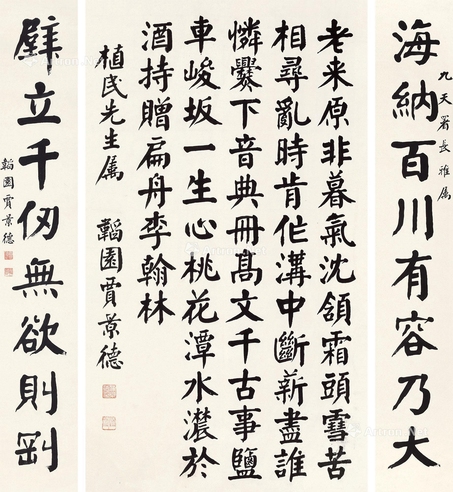 海納百川有容乃大
九天署長雅屬
老来原非暮氣沈頷霜頭雪苦
相尋亂時肯作溝中斷薪盡誰
憐爨下音典冊高文千古事鹽
車峻坂一生心桃花潭水濃於
酒持贈扁舟李翰林
植民先生属 韜園賈景德
壁立千仞無欲則剛
韜園賈景德